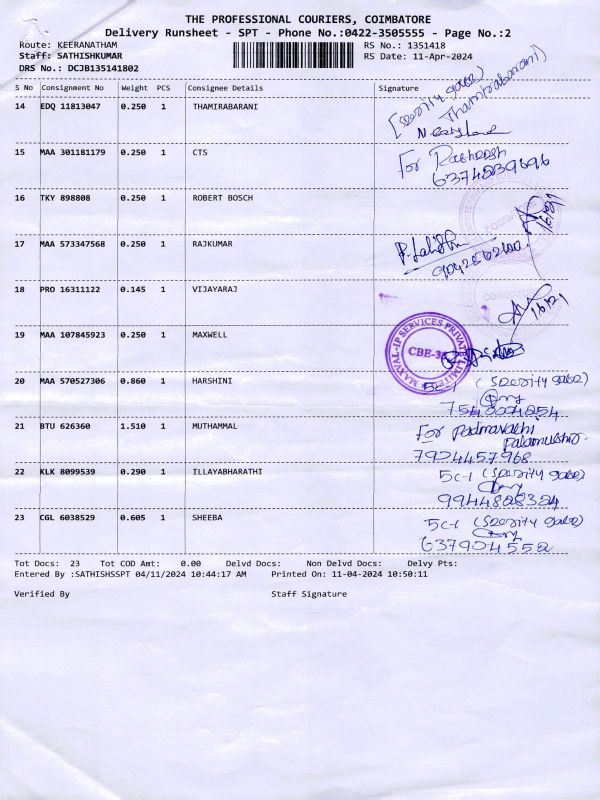 THE PROFESSIONAL COURIERS, COIMBATORE
Delivery Runsheet - SPT - Phone No.:0422-3505555 - Page No.:2
Route: KEERANATHAM
RS No.: 1351418
Staff: SATHISHKUMAR
RS Date: 11-Apr-2024
DRS No.: DCJB135141802
S No Consignment No Weight PCS Consignee Details Signature
14 EDQ 11813047 0.250 1 THAMIRABARANI
15 MAA 301181179 0.250 1 CTS
For Ragheesh
16 TKY 898808 0.250 1 ROBERT BOSCH
COIMBATORE
17 MAA 573347568 0.250 1 RAJKUMAR
18 PRO 16311122 0.145 1 VIJAYARAJ
COIMBATORE
19 MAA 107845923 0.250 1 MAXWELL
MAXVAL-IP SERVICES PRIVATE LIMITED
20 MAA 570527306 0.860 1 HARSHINI
21 BTU 626360 1.510 1 MUTHAMMAL
For Padmavathi
7924457968
22 KLK 8099539 0.290 1 ILLAYABHARATHI
5c-1
9944828324
23 CGL 6038529 0.605 1 SHEEBA
5c-1
637904552
Tot Docs: 23 Tot COD Amt: 0.00 Delvd Docs: Non Delvd Docs: Delvy Pts:
Entered By :SATHISHSSPT 04/11/2024 10:44:17 AM Printed On: 11-04-2024 10:50:11
Verified By Staff Signature